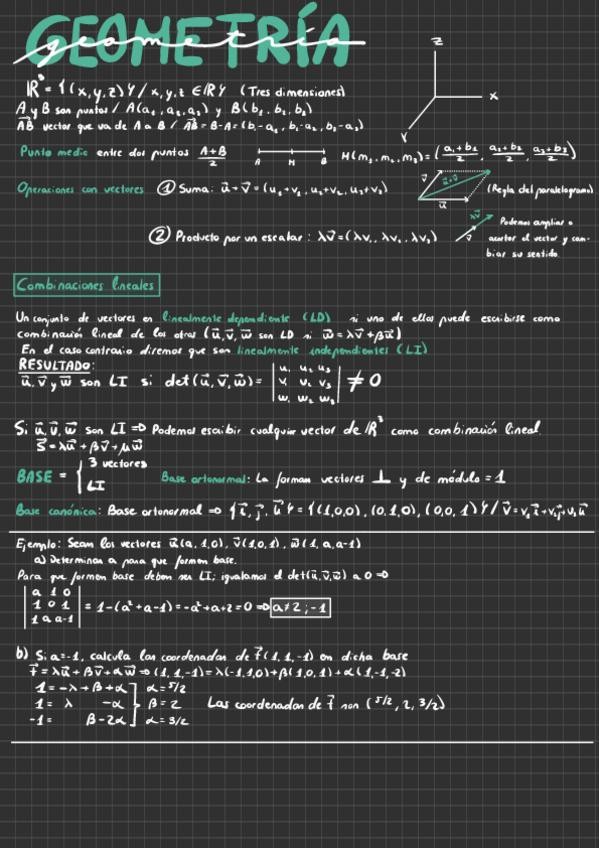 GEOMETRÍA
geometría
ℝ³ = {(x,y,z)} / x,y,z ∈ ℝ} (Tres dimensiones)
A y B son puntos / A(a₁,a₂,a₃) y B(b₁,b₂,b₃)
AB⃗ vector que va de A a B / AB⃗ = B-A = (b₁-a₁, b₂-a₂, b₃-a₃)
z
x
y
Punto medio entre dos puntos (A+B)/2 A M B M(m₁,m₂,m₃) = ((a₁+b₁)/2, (a₂+b₂)/2, (a₃+b₃)/2)
Operaciones con vectores ① Suma: u⃗+v⃗ = (u₁+v₁, u₂+v₂, u₃+v₃) v⃗ u⃗+v⃗ u⃗ (Regla del paralelogramo)
② Producto por un escalar: λv⃗ = (λv₁, λv₂, λv₃) v⃗ λv⃗ Podemos ampliar o
acortar el vector y cam-
biar su sentido.
Combinaciones lineales
Un conjunto de vectores en linealmente dependiente (LD) si uno de ellos puede escribirse como
combinación lineal de los otros (u⃗, v⃗, w⃗ son LD si w⃗ = λv⃗ + βu⃗)
En el caso contrario diremos que son linealmente independientes (LI)
RESULTADO:
u⃗, v⃗ y w⃗ son LI si det(u⃗, v⃗, w⃗) = | u₁ u₂ u₃ | v₁ v₂ v₃ | w₁ w₂ w₃ | ≠ 0
Si u⃗, v⃗, w⃗ son LI ⇒ Podemos escribir cualquier vector de ℝ³ como combinación lineal.
s⃗ = λu⃗ + βv⃗ + μw⃗
BASE = { 3 vectores
LI
Base ortonormal: La forman vectores ⊥ y de módulo = 1
Base canónica: Base ortonormal ⇒ {i⃗, j⃗, u⃗} = {(1,0,0), (0,1,0), (0,0,1)} / v⃗ = v₁i⃗ + v₂j⃗ + v₃u⃗
Ejemplo: Sean los vectores u⃗(a,1,0), v⃗(1,0,1), w⃗(1,a,a-1)
a) Determinar a para que formen base.
Para que formen base deben ser LI; igualamos el det(u⃗,v⃗,w⃗) a 0 ⇒
| a 1 0 |
| 1 0 1 | = 1-(a²+a-1) = -a²+a+2 = 0 ⇒ a≠2;-1
| 1 a a-1 |
b) Si a=-1, calcula las coordenadas de r⃗(1,1,-1) en dicha base
r⃗ = λu⃗ + βv⃗ + αw⃗ ⇒ (1,1,-1) = λ(-1,1,0) + β(1,0,1) + α(1,-1,-2)
1 = -λ + β + α } α = 5/2
1 = λ -α } β = 2 Las coordenadas de r⃗ son (5/2, 2, 3/2)
-1 = β-2α } α = 3/2